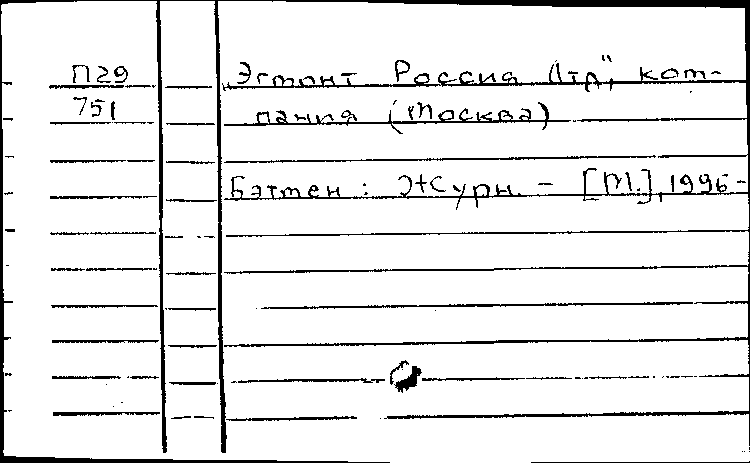 П29
751
„Эгмонт Россия Лтд", ком-
пания (Москва)
Бэтмен : Журн. - [М.], 1996-